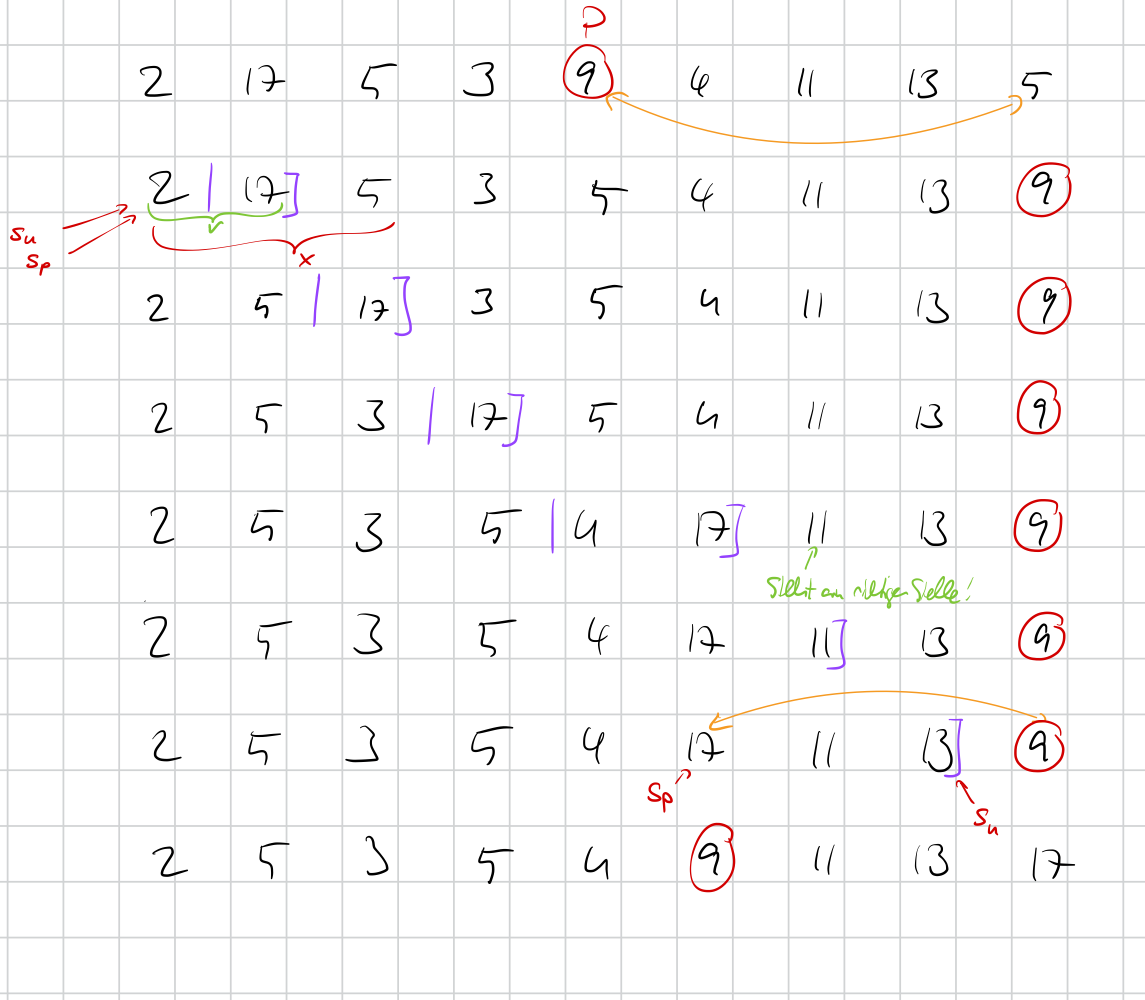 P
2 17 5 3 9 4 11 13 5
2 | 17 ] 5 3 5 4 11 13 9
Su
Sp
x
2 5 | 17 ] 3 5 4 11 13 9
2 5 3 | 17 ] 5 4 11 13 9
2 5 3 5 | 4 17 ] 11 13 9
Steht am richtiger Stelle!
2 5 3 5 4 17 11 ] 13 9
2 5 3 5 4 17 11 13 ] 9
Sp
Su
2 5 3 5 4 9 11 13 17